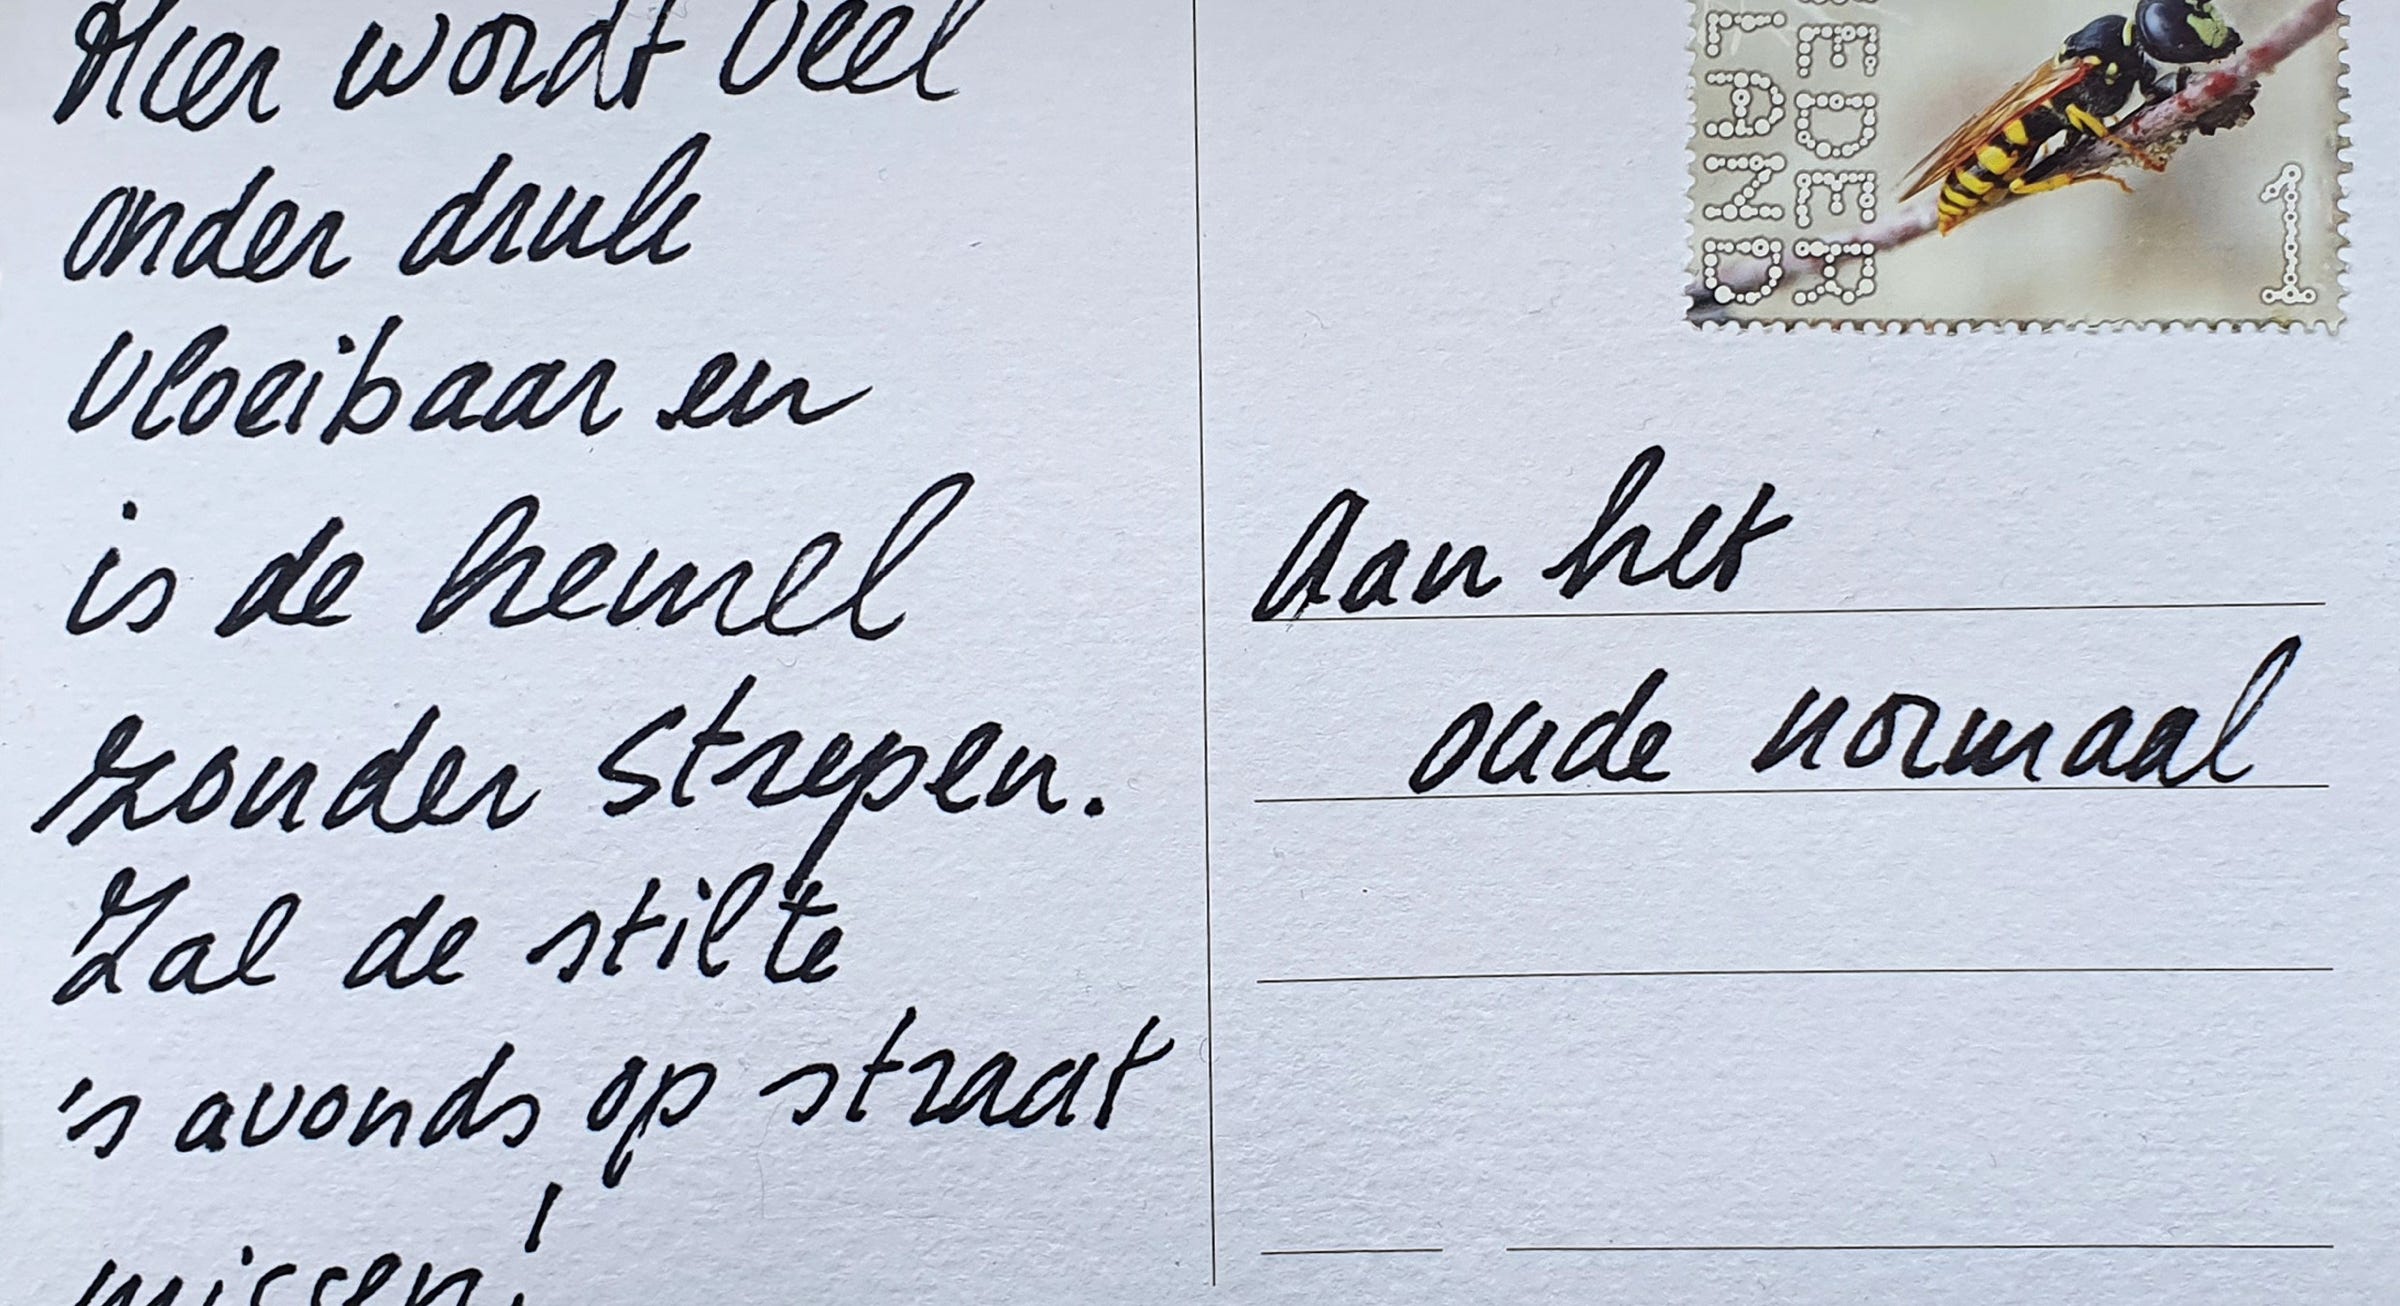 Hier wordt veel
onder druk
vloeibaar en
is de hemel
zonder strepen.
Zal de stilte
's avonds op straat
missen!
NEDER
LAND
1
Aan het
oude normaal